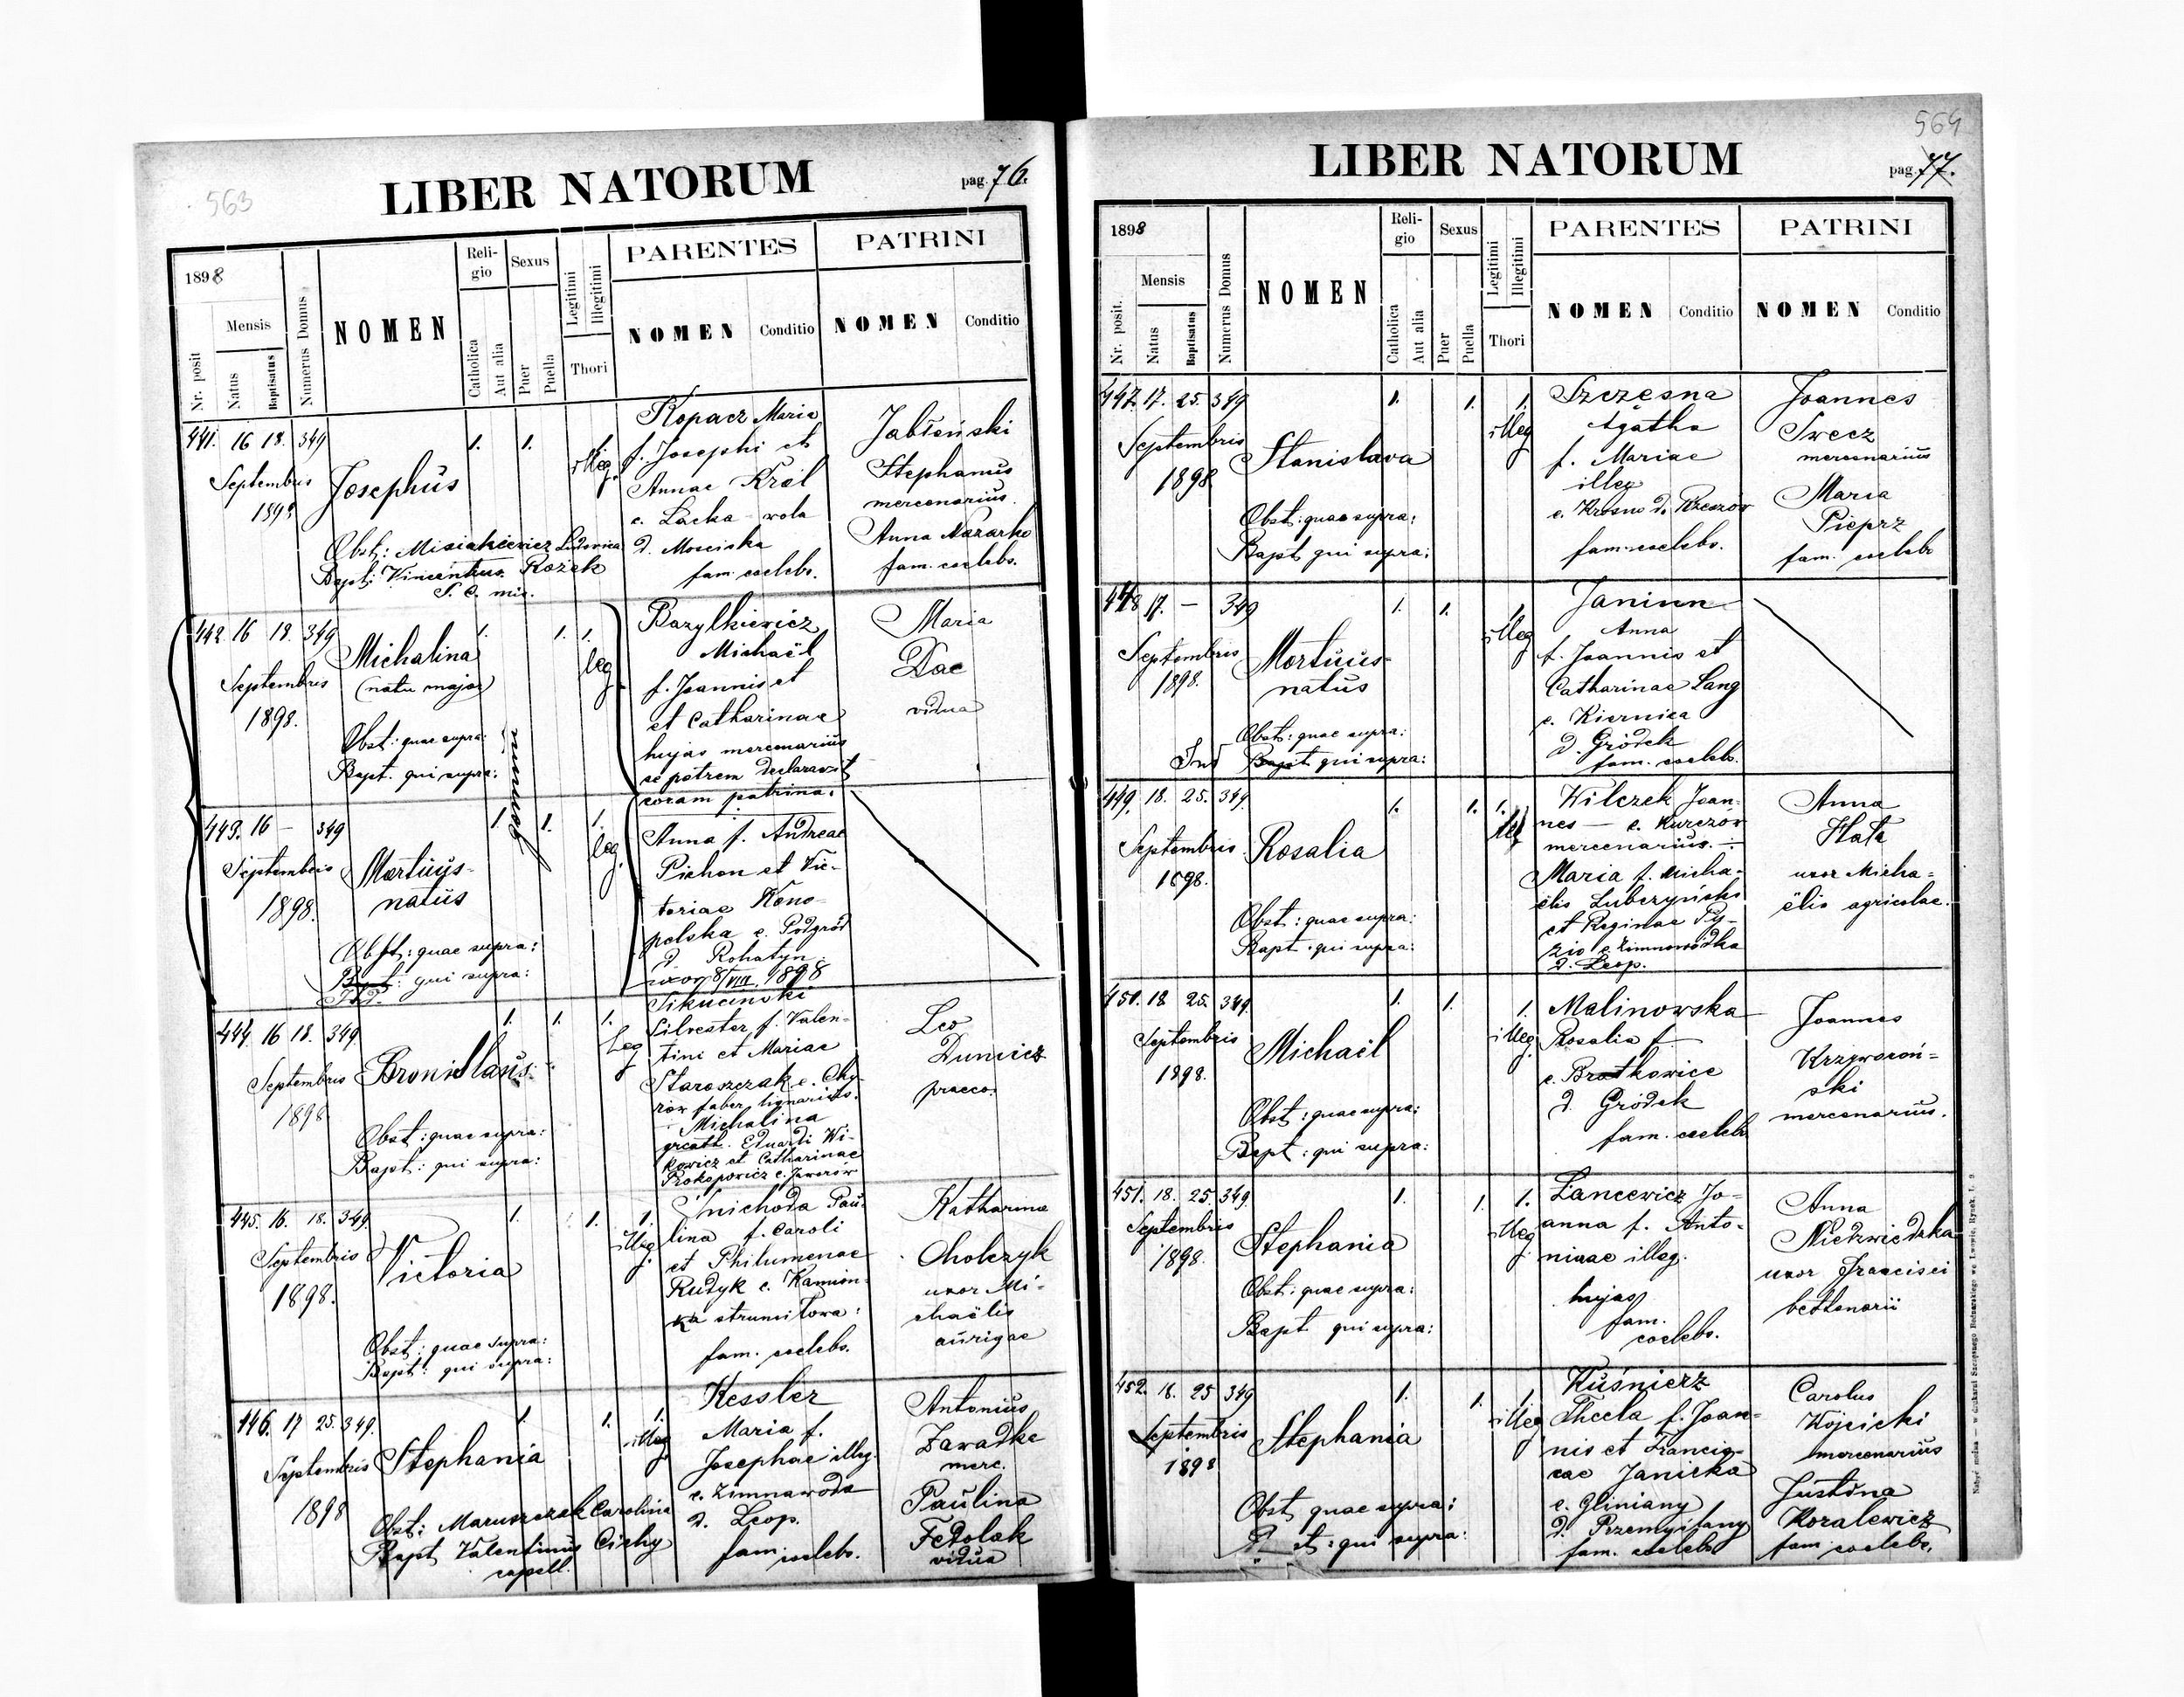 563
LIBER NATORUM
pag. 76.
1898
Mensis
Nr. posit
Natus
Baptisatus
Numerus Domus
NOMEN
Religio
Catholica
Aut alia
Sexus
Puer
Puella
Legitimi
Illegitimi
Thori
PARENTES
NOMEN
Conditio
PATRINI
NOMEN
Conditio
441. 16 18. 349
Septembris
1898
Josephus
1. 1. 1.
illeg.
Obst: Misiakiewicz Ludovica
Bapt: Vincentius Rożek
S. C. mis.
Kopacz Maria
f. Josephi et
Annae Król
e. Łacka wola
d. Mosciska
fam. coelebs.
Jabłoński
Stephanus
mercenarius.
Anna Nazarko
fam. coelebs.
442. 16 18. 349
Septembris
1898.
Michalina
(natu major)
1. 1. 1.
leg.
gemini
Obst: quae supra:
Bapt. qui supra:
Bazylkiewicz
Michaël
f. Joannis et
et Catharinae
hujas mercenarius
se patrem declaravit
coram patrina.
Maria
Dac
vidua
443. 16 — 349
Septembris
1898.
Mortuus-
natus
1. 1. 1.
leg.
Obst: quae supra:
Bapt: qui supra:
Ind.
Anna f. Andreae
Pichon et Vic-
toriae Kono-
polska e. Podgród
d. Rohatyn.
uxor 8/VIII 1898
444. 16 18. 349.
Septembris
1898
Bronislaus
1. 1. 1.
Leg
Obst: quae supra:
Bapt: qui supra:
Sikucinski
Silvester, f. Valen-
tini et Mariae
Staroszczak e. Chy-
rów faber lignarius.
Michalina
gr. cath. Eduardi Wi-
kowicz et Catharinae
Prokopowicz e. Jaworów
Leo
Dunicz
praeco.
445. 16. 18. 349.
Septembris
1898.
Victoria
1. 1. 1.
illeg.
Obst: quae supra:
Bapt: qui supra:
Śnichoda Pau-
lina f. Caroli
et Philumenae
Rudyk e. Kamion-
ka strumiłowa:
fam. coelebs.
Katharina
Cholczyk
uxor Mi-
chaëlis
aurigae
446. 17 25. 349.
Septembris
1898
Stephania
1. 1. 1.
illeg
Obst: Maruszczak Carolina
Bapt Valentinus Cichy
capell.
Kessler
Maria f.
Josephae illeg.
e. Zimnawoda
d. Leop.
fam. coelebs.
Antonius
Zawadke
merc.
Paulina
Fedolak
vidua
564
LIBER NATORUM
pag. 77.
1898
Mensis
Nr. posit.
Natus
Baptisatus
Numerus Domus
NOMEN
Religio
Catholica
Aut alia
Sexus
Puer
Puella
Legitimi
Illegitimi
Thori
PARENTES
NOMEN
Conditio
PATRINI
NOMEN
Conditio
447. 17. 25. 349
Septembris
1898
Stanislava
1. 1. 1.
illeg
Obst: quae supra:
Bapt qui supra:
Szczęsna
Agatha
f. Mariae
illeg
e. Krosno d. Rzeszów
fam. coelebs.
Joannes
Swecz
mercenarius
Maria
Pieprz
fam. coelebs
448 17. — 349
Septembris
1898.
Mortuus-
natus
1. 1.
illeg
Obst: quae supra:
Ind Bapt qui supra:
Janiun
Anna
f. Joannis et
Catharinae Lang
e. Kiernica
d. Gródek
fam. coeleb.
449. 18. 25. 349.
Septembris
1898.
Rosalia
1. 1. 1.
leg
Obst: quae supra:
Bapt. qui supra:
Wilczek Joan-
nes — e. Kurczów
mercenarius. ÷
Maria f. Micha-
ëlis Lubczyński
et Reginae Py-
zio e Zimnowódka
d. Leop.
Anna
Hata
uxor Micha-
ëlis agricolae.
450. 18 25. 349.
Septembris
1898.
Michaël
1. 1. 1.
illeg
Obst: quae supra:
Bapt: qui supra:
Malinowska
Rosalia f —
e. Bratkowice
d. Gródek
fam. coeleb
Joannes
Krzyworoń-
ski
mercenarius.
451. 18. 25. 349.
Septembris
1898.
Stephania
1. 1. 1.
illeg
Obst: quae supra:
Bapt qui supra:
Lancewicz Jo-
anna f. Anto-
ninae illeg.
hujas
fam.
coelebs.
Anna
Niedzwiedzka
uxor Francisci
bettonarii
452. 18. 25 349
Septembris
1898
Stephania
1. 1. 1.
illeg
Obst quae supra:
qui supra:
Kuśnierz
Thecla f. Joan-
nis et Francis-
cae Janicka
e. Gliniany
d. Przemyślany
fam. coelebs
Carolus
Wojcicki
mercenarius
Justina
Koralewicz
fam. coelebs.